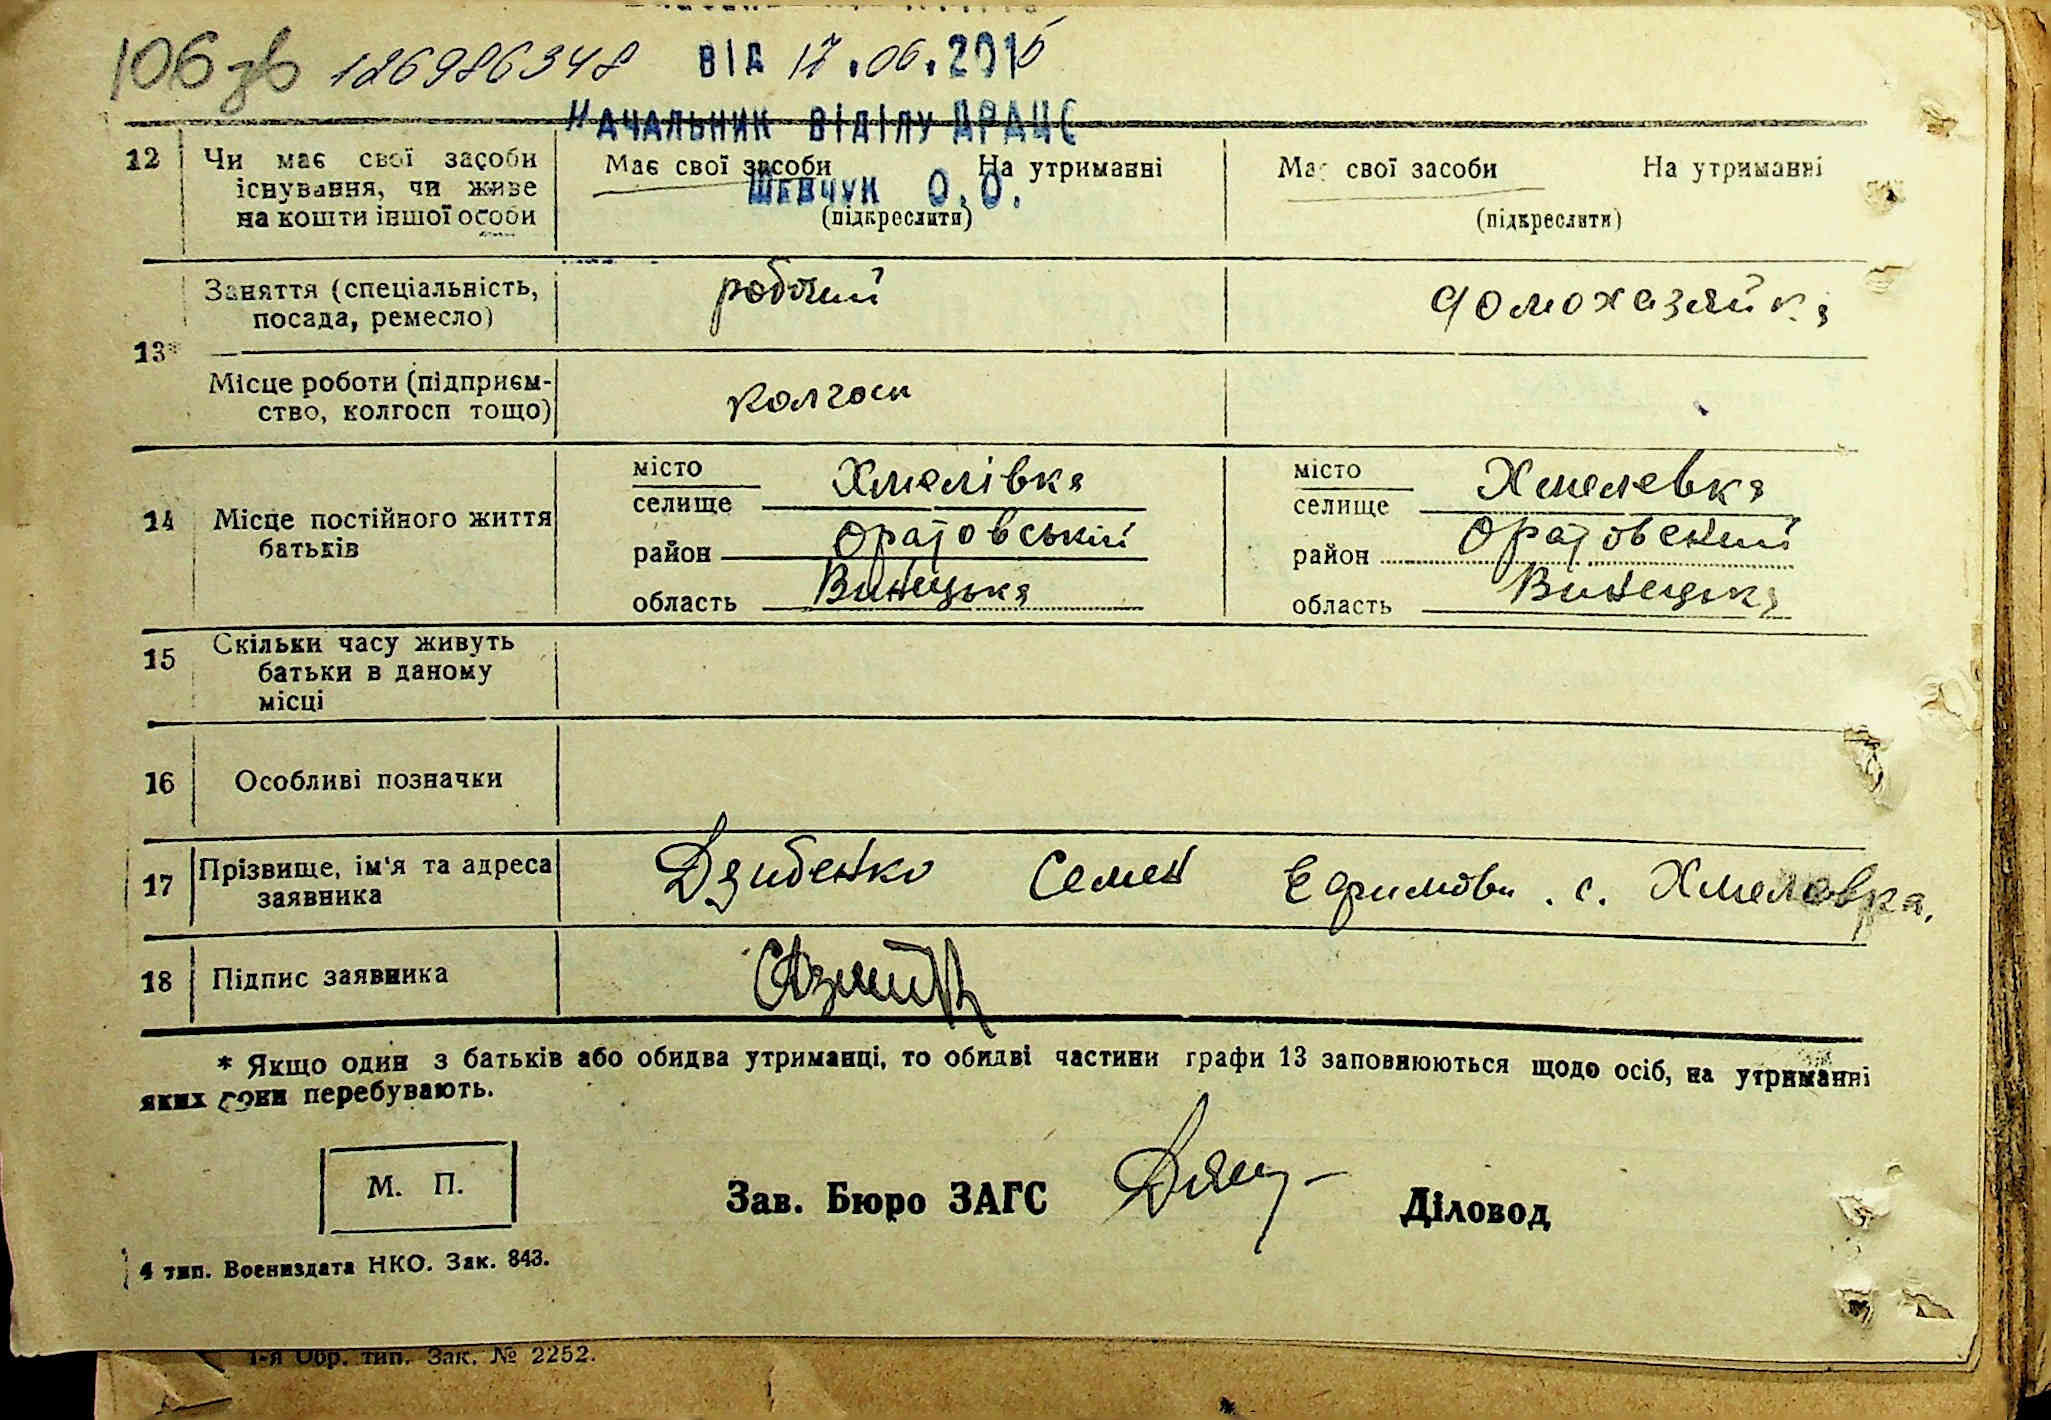 106 зв 126986348 від 17.06.2015
Начальник відділу ДРАЦС
12 Чи має свої засоби Має свої засоби На утриманні Має свої засоби На утриманні
існування, чи живе Шевчук О.О.
на кошти іншої особи (підкреслити) (підкреслити)
Заняття (спеціальність, робочий домохазяйка
посада, ремесло)
13*
Місце роботи (підприєм- колгосп
ство, колгосп тощо)
місто Хмелівка місто Хмелевка
селище селище
14 Місце постійного життя Оратовський Оратовский
батьків район район
область Винецька область Винецька
15 Скільки часу живуть
батьки в даному
місці
16 Особливі позначки
17 Прізвище, ім'я та адреса Дзибенко Семен Ефимови . с. Хмеловка.
заявника
18 Підпис заявника
* Якщо один з батьків або обидва утриманці, то обидві частини графи 13 заповнюються щодо осіб, на утриманні
яких вони перебувають.
М. П.
Зав. Бюро ЗАГС Діловод
4 тип. Воениздата НКО. Зак. 843.
1-я Обр. тип. Зак. № 2252.